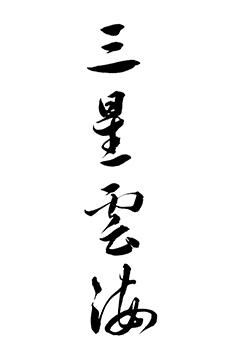 三星雲海